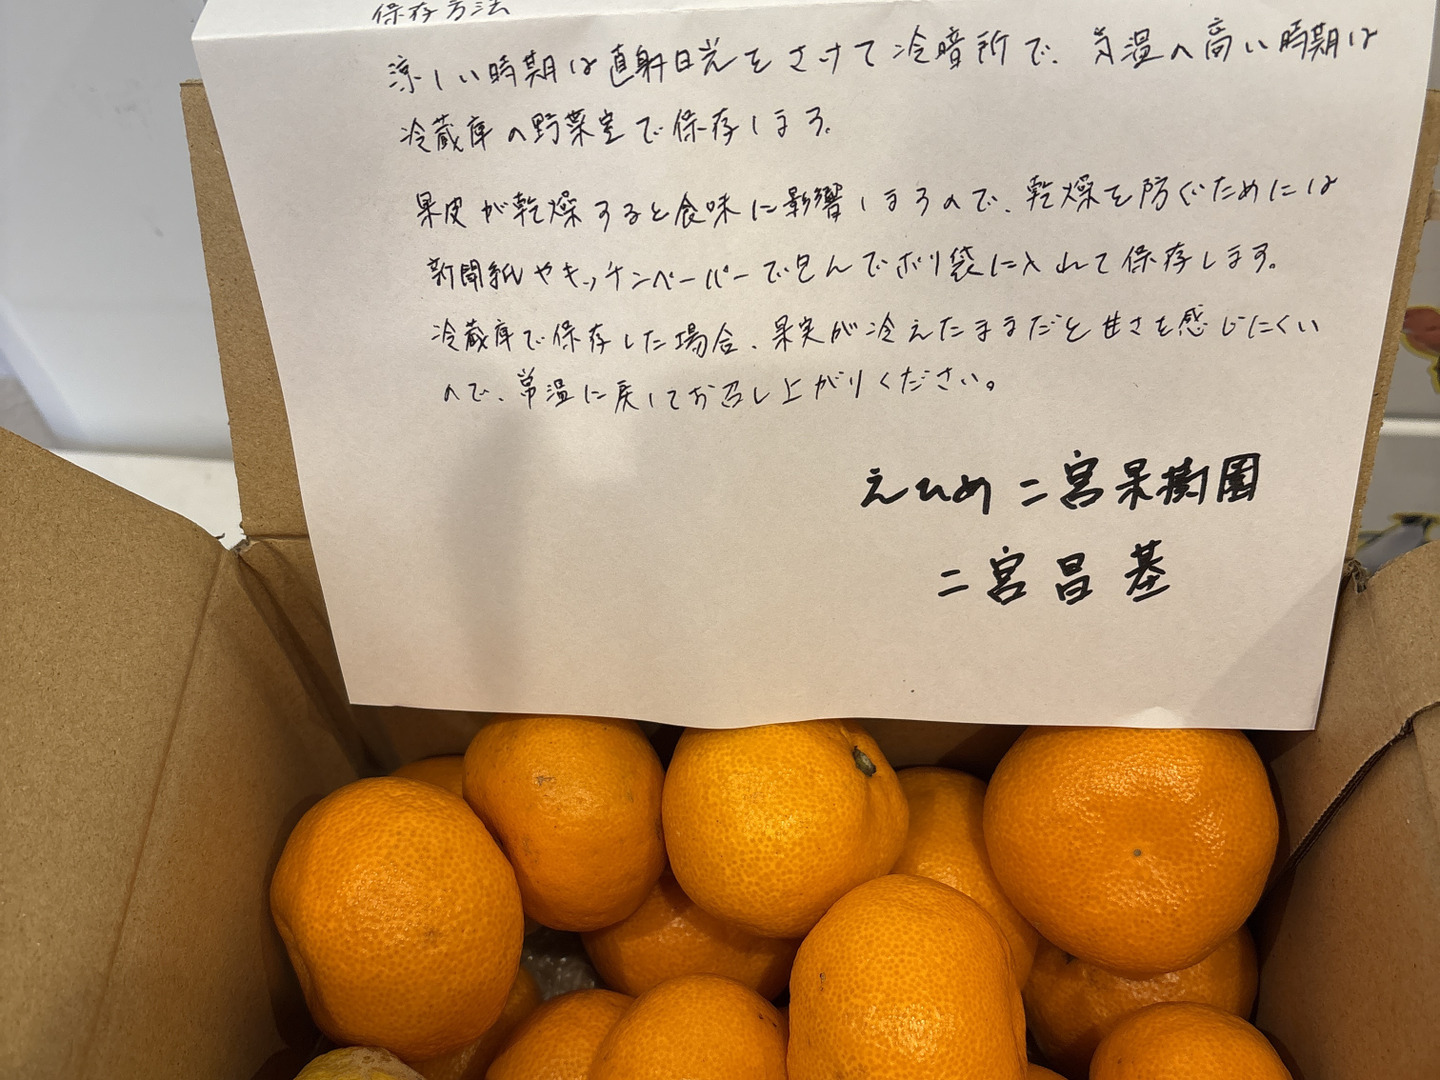 保存方法
涼しい時期は直射日光をさけて冷暗所で、気温の高い時期は
冷蔵庫の野菜室で保存します。
果皮が乾燥すると食味に影響しますので、乾燥を防ぐためには
新聞紙やキッチンペーパーで包んでポリ袋に入れて保存します。
冷蔵庫で保存した場合、果実が冷えたままだと甘さを感じにくい
ので、常温に戻してお召し上がりください。
えひめ 二宮果樹園
二宮昌基